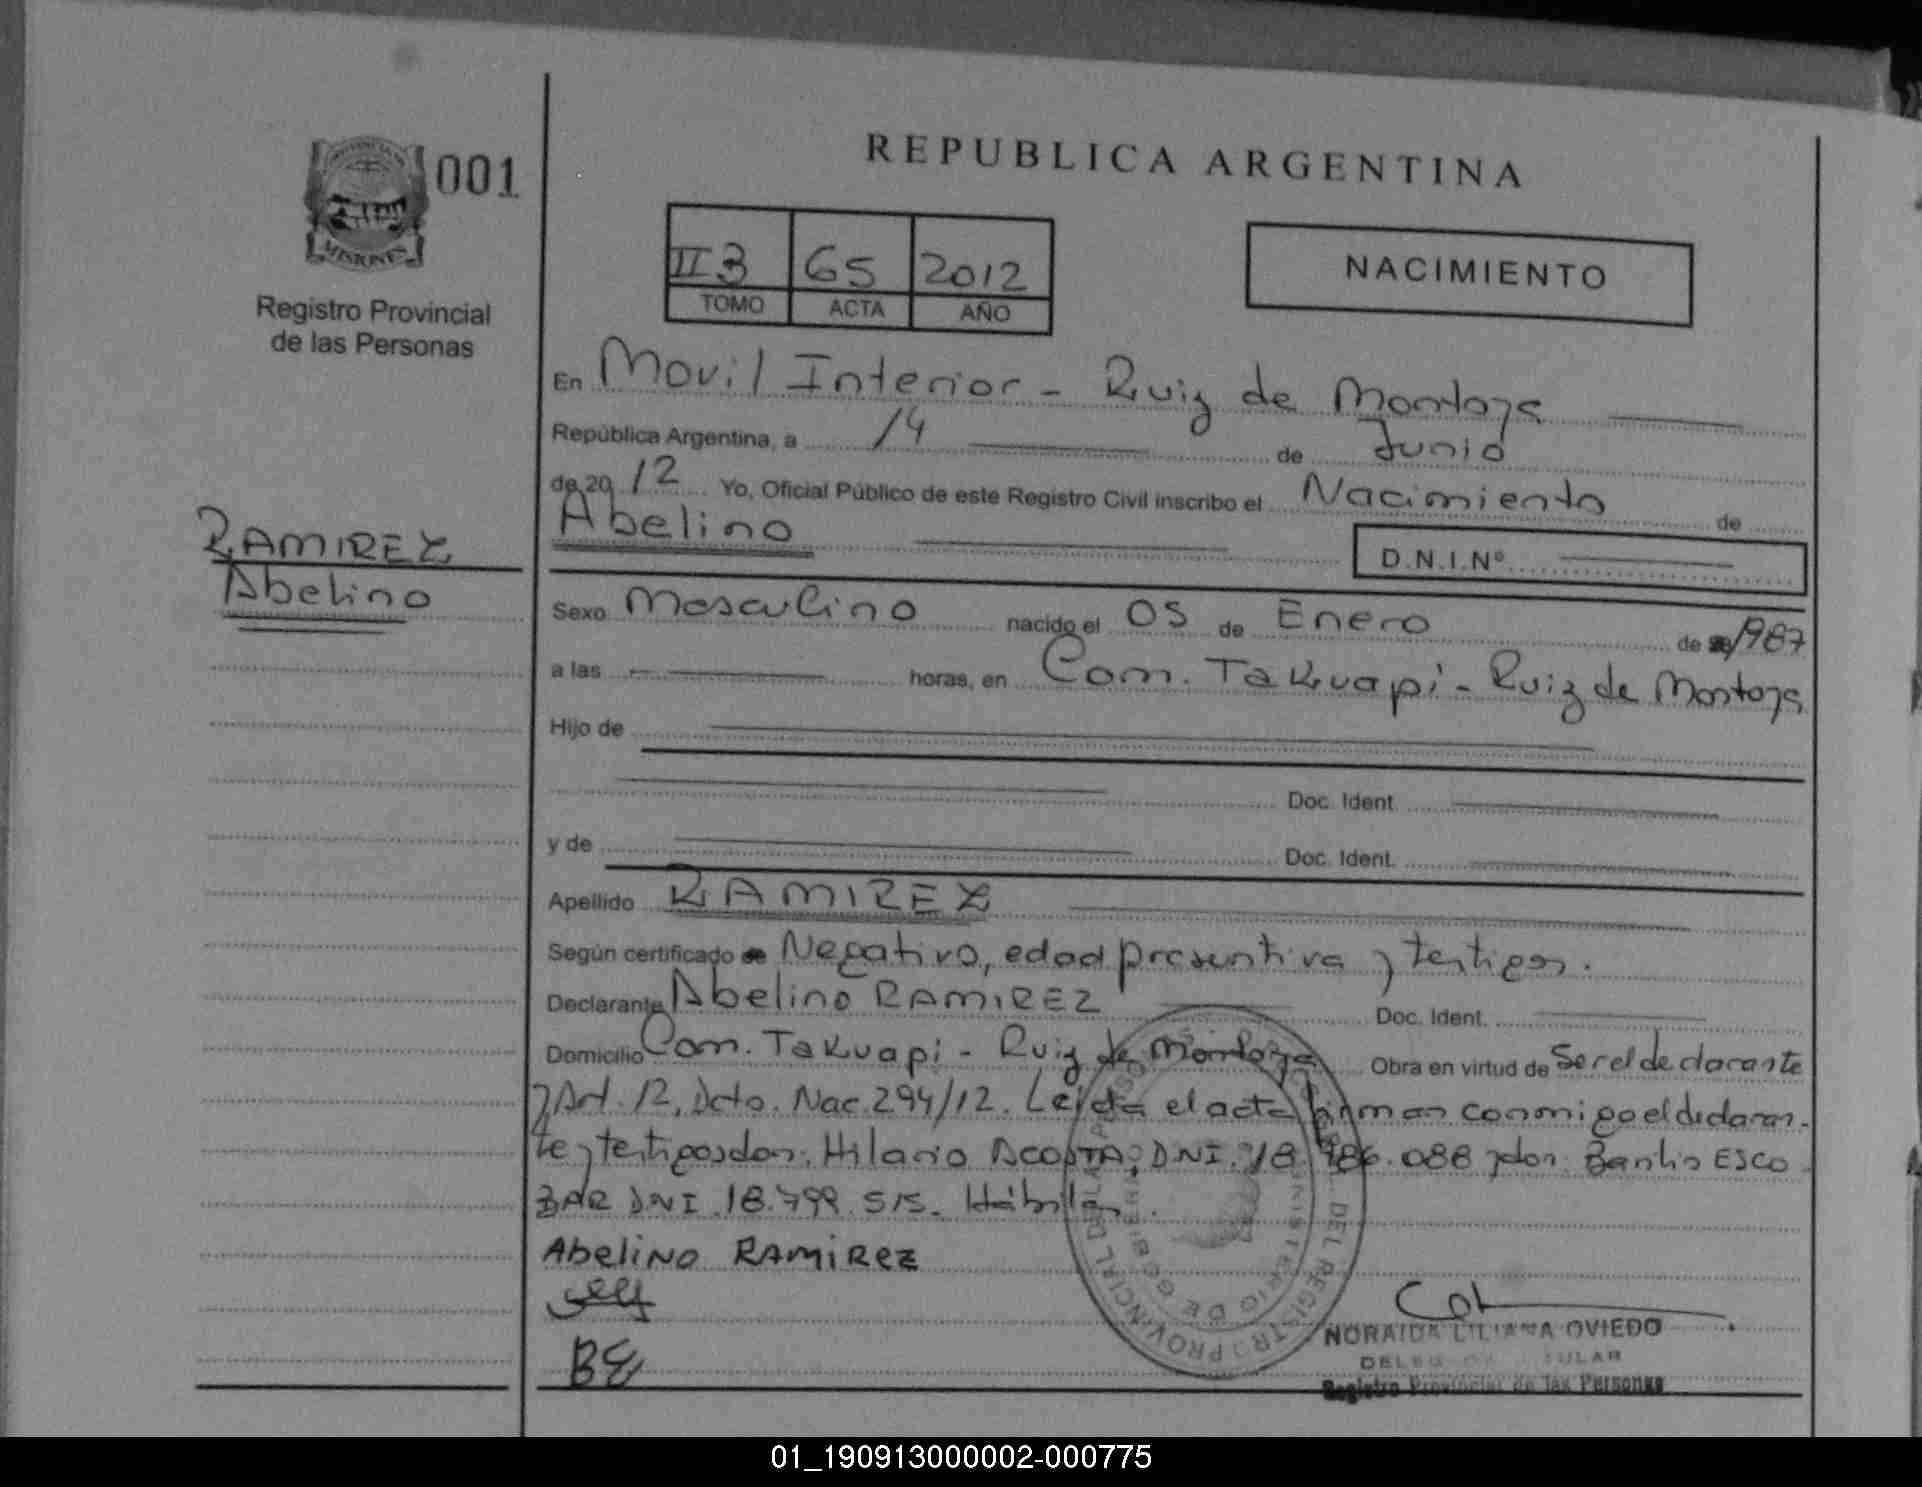 REPUBLICA ARGENTINA
001
MISIONES
Registro Provincial
de las Personas
II 3 65 2012
TOMO ACTA AÑO
NACIMIENTO
En Movil Interior - Ruiz de Montoya
República Argentina, a 14 de Junio
de 20 12 Yo, Oficial Público de este Registro Civil inscribo el Nacimiento de
Abelino
D.N.I.Nº
RAMIREZ
Abelino
Sexo Masculino nacido el 05 de Enero de 1987
a las horas, en Com. Takuapi - Ruiz de Montoya
Hijo de
Doc. Ident.
y de Doc. Ident.
Apellido RAMIREZ
Según certificado de Negativo, edad presuntiva y testigos.
Declarante Abelino RAMIREZ Doc. Ident.
Domicilio Com. Takuapi - Ruiz de Montoya Obra en virtud de Ser el declarante
y Art. 12, Dcto. Nac. 294/12. Leida el acta firman conmigo el declaran-
te y testigos don, Hilario ACOSTA, DNI. 18.786.088 y don Benito ESCO
BAR DNI 18.799.515. Hábiles.
Abelino RAMIREZ
BE
NORAIDA LILIANA OVIEDO
Registro Provincial de las Personas
REGISTRO PROVINCIAL DE LAS PERSONAS
MINISTERIO DE GOBIERNO
01_190913000002-000775